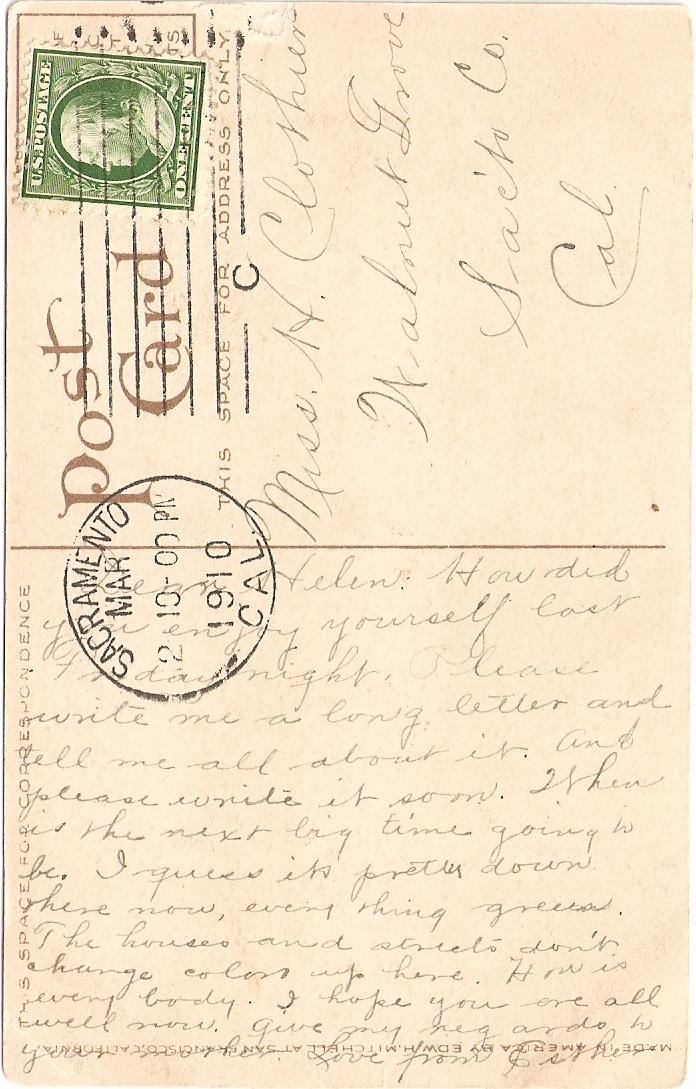 Post
Card
THIS SPACE FOR ADDRESS ONLY
U.S. POSTAGE
ONE CENT
SACRAMENTO
MAR
2 10-00 PM
1910
CAL.
C
Miss. H. Clothier
Walnut Grove
Sac'to Co.
Cal.
THIS SPACE FOR CORRESPONDENCE
Dear Helen. How did
you enjoy yourself last
Friday night. Please
write me a long letter and
tell me all about it. And
please write it soon. When
is the next big time going to
be. I guess its pretty down
there now, every thing green.
The houses and streets don't
change colors up here. How is
every body. I hope you are all
well now. Give my regards to
your Love from Esther
MADE IN AMERICA BY EDW. H. MITCHELL AT SAN FRANCISCO, CALIFORNIA.